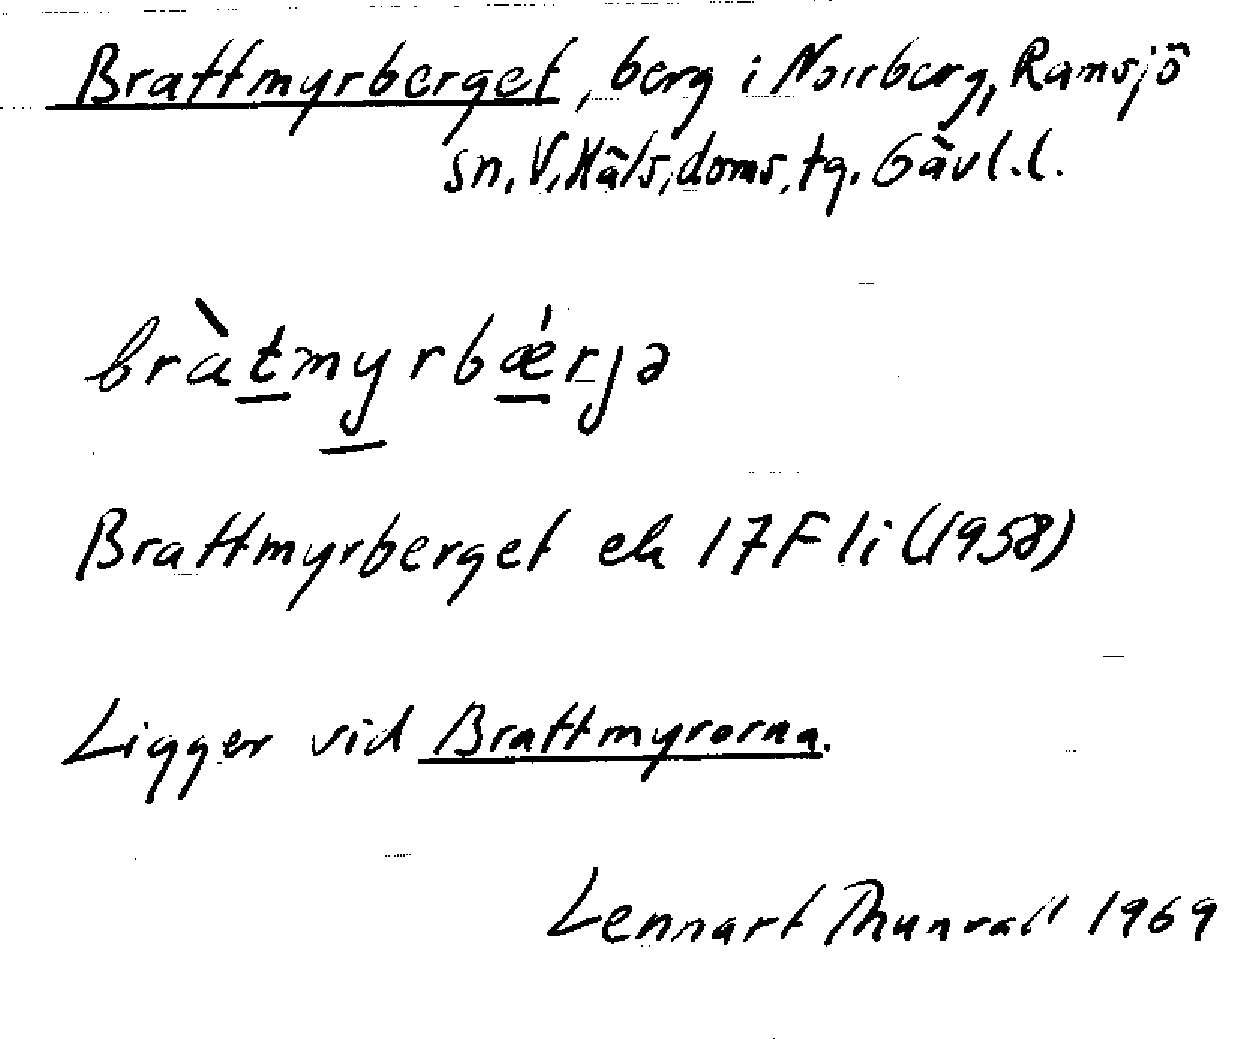 Brattmyrberget, berg i Norrberg, Ramsjö
sn. V. Häls. doms. tg. Gävl. l.
bràtmyrbǽrjə
Brattmyrberget ek 17F 1i (1958)
Ligger vid Brattmyrorna.
Lennart Thunvall 1969